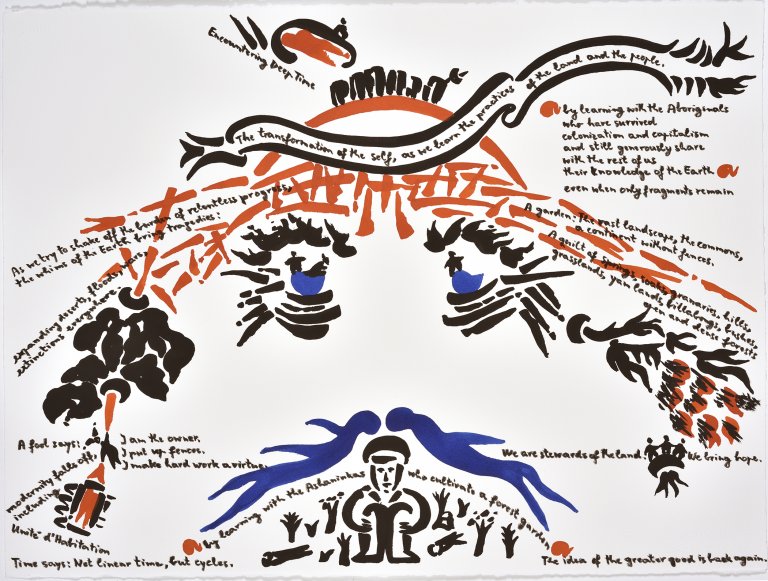 Encountering Deep Time
The transformation of the self, as we learn the practices of the land and the people.
by learning with the Aboriginals
who have survived
colonization and capitalism
and still generously share
with the rest of us
their knowledge of the Earth
even when only fragments remain
As we try to shake off the burden of relentless progress,
the whims of the Earth bring tragedies:
expanding deserts, floods,
extinctions everywhere.
A garden: the vast landscape, the commons,
a continent without fences.
A quilt of springs, soaks, granaries, hills,
grasslands, yam lands, billabongs, bushes
open and dense forests
A fool says:
I am the owner.
I put up fences.
I make hard work a virtue.
modernity falls off,
including
Unité d'Habitation
Time says: Not linear time, but cycles.
by learning with the Ashaninkas who cultivate a forest garden,
We are stewards of the land
We bring hope.
The idea of the greater good is back again.